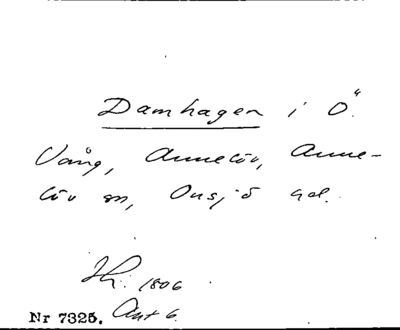 Damhagen i Ö.
Vång, Annelöv, Anne-
löv sn, Onsjö hd.
1806
Nr 7325. Akt 6